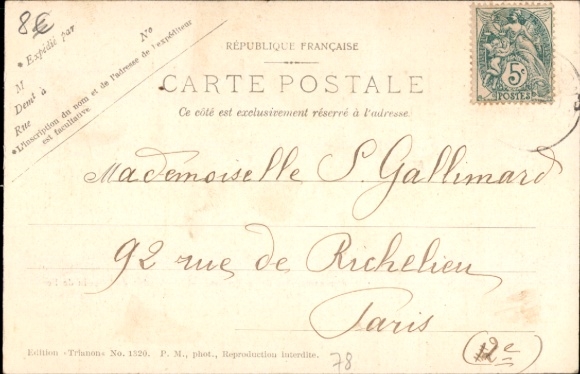 8€
* Expédié par
N°
M
Demt à
Rue
*L'inscription du nom et de l'adresse de l'expéditeur
est facultative
RÉPUBLIQUE FRANÇAISE
CARTE POSTALE
Ce côté est exclusivement réservé à l'adresse.
5c
POSTES
Mademoiselle S. Gallimard
92 rue de Richelieu
Paris
(12e)
Edition «Trianon» No. 1320. P. M., phot., Reproduction interdite.
78